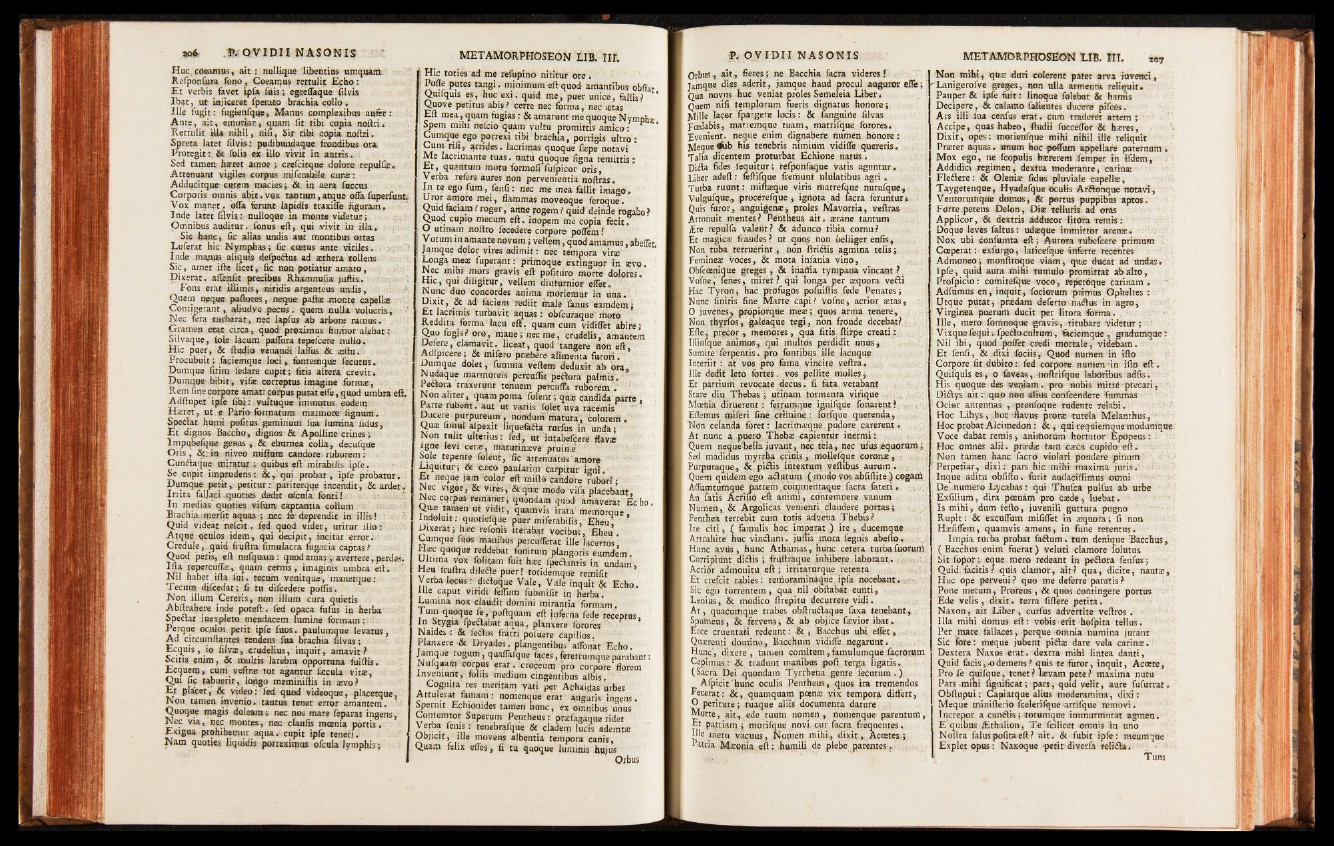 206 P. OVIDII NASONIS
Huc coeamus, ait: nullique libentius umquam
Responsura sono, Coeamus rettulit Echo:
Et verbis favet ipsa suis; egressaque silvis
Ibat, ut injiceret sperato brachia collo.
Ille fugit: fugiensque, Manus complexibus aufer:
Ante, ait, emoriar, quam sit tibi copia nostri.
Rettulit illa nihil, nisi, Sit tibi copia nostri.
Spreta latet silvis: pudibundaque frondibus ora
Protegit: & solis ex illo vivit in antris.
Sed tamen hæret amor; crescitque dolore repulsæ.
Attenuant vigiles corpus miserabile curæ:
Adducitque cutem macies; & in aera succus
Corporis omnis abit. vox tantum, atque ossa supersunt.
Vox manet. ossa ferunt lapidis traxisse figuram.
Inde latet silvis: nulloque in monte videtur;
Omnibus auditur. sonus est, qui vivit in illa.
Sic hanc, sic alias undis aut montibus ortas
Luserat hic Nymphas; sic cœtus ante viriles.
Inde manus aliquis despectus ad æthera tollens
Sic, amet iste licet, sic non potiatur amato,
Dixerat. assensit precibus Rhamnusia justis.
Fons erat illimis, nitidis argenteus undis,
Quem neque pastores, neque pastæ monte capellæ
Contigerant, aliudve pecus. quem nulla volucris,
Nec fera turbarat, nec lapsus ab arbore ramus.
Gramen erat circa, quod proximus humor alebat:
Silvaque, sole lacum passura tepescere nullo.
Hic puer, & studio venandi lassus & æstu.
Procubuit; faciemque loci, fontemque secutus.
Dumque sitim sedare cupit; sitis altera crevit.
Dumque bibit, visæ correptus imagine formæ,
Rem sine corpore amat: corpus putat esse, quod umbra est.
Adstupet ipse sibi: vultuque immotus eodem
Hæret, ut e Pario formatum marmore signum.
Spectat humi positus geminum sua lumina sidus,
Et dignos Baccho, dignos & Apolline crines;
Impubesque genas, & eburnea colla, decusque
Oris, & in niveo mistum candore ruborem:
Cunctaque miratur; quibus est mirabilis ipse.
Se cupit imprudens: &, qui probat, ipse probatur.
Dumque petit, petitur: pariterque incendit, & ardet.
Irrita fallaci quoties dedit oscula fonti!
In medias quoties visum captantia collum
Brachia mersit aquas; nec se deprendit in illis!
Quid videat nescit. sed quod videt, uritur illo:
Atque oculos idem, qui decipit, incitat error.
Credule, quid frustra simulacra fugacia captas?
Quod petis, est nusquam: quod amas, avertere, perdes.
Ista repercussæ, quam cernis, imaginis umbra est.
Nil habet ista sui. tecum venitque, manetque:
Tecum discedat; si tu discedere possis.
Non illum Cereris, non illum cura quietis
Abstrahere inde potest. sed opaca fusus in herba
Spectat inexpleto mendacem lumine formam;
Perque oculos perit ipse suos. paulumque levatus,
Ad circumstantes tendens sua brachia silvas;
Ecquis, io silvæ, crudelius, inquit, amavit?
Scitis enim, & multis latebra opportuna fuistis.
Ecquem, cum vestræ tot agantur sæcula vitæ,
Qui sic tabuerit, longo meministis in ævo?
Et placet, & video: sed quod videoque, placetque,
Non tamen invenio. tantus tenet error amantem.
Quoque magis doleam; nec nos mare separat ingens,
Nec via, nec montes, nec clausis mœnia portis.
Exigua prohibemur aqua. cupit ipse teneri.
Nam quoties liquidis porreximus oscula lymphis;
METAMORPHOSEON LIB. III.
Hic toties ad me resupino nititur ore.
Posse putes tangi. minimum est quod amantibus obstat.
Quisquis es, huc exi. quid me, puer unice, fallis?
Quove petitus abis? certe nec forma, nec ætas
Est mea, quam fugias: & amarunt me quoque Nymphæ.
Spem mihi nescio quam vultu promittis amico:
Cumque ego porrexi tibi brachia, porrigis ultro:
Cum risi, arrides. lacrimas quoque sæpe notavi
Me lacrimante tuas. nutu quoque signa remittis:
Et, quantum motu formosi suspicor oris,
Verba refers aures non pervenientia nostras.
In te ego sum, sensi: nec me mea fallit imago.
Uror amore mei, flammas moveoque feroque.
Quid faciam? roger, anne rogem? quid deinde rogabo?
Quod cupio mecum est. inopem me copia fecit.
O utinam nostro secedere corpore possem!
Votum in amante novum; vellem, quod amamus, abesset.
Jamque dolor vires adimit: nec tempora vitæ
Longa meæ superant: primoque extinguor in ævo.
Nec mihi mors gravis est posituro morte dolores.
Hic, qui diligitur, vellem diuturnior esset.
Nunc duo concordes anima moriemur in una.
Dixit, & ad faciem rediit male sanus eamdem;
Et lacrimis turbavit aquas: obscuraque moto
Reddita forma lacu est. quam cum vidisset abire;
Quo fugis? oro, mane; nec me, crudelis, amantem
Desere, clamavit. liceat, quod tangere non est,
Adspicere; & misero præbere alimenta furori.
Dumque dolet, summa vestem deduxit ab ora,
Nudaque marmoreis percussit pectora palmis.
Pectora traxerunt tenuem percussa ruborem.
Non aliter, quam poma solent; quæ candida parte,
Parte rubent. aut ut variis solet uva racemis
Ducere purpureum, nondum matura, colorem.
Quæ simul aspexit liquefacta rursus in unda;
Non tulit ulterius: sed, ut intabescere flavæ
Igne levi ceræ, matutinæve pruinæ
Sole tepente solent, sic attenuatus amore
Liquitur; & cæco paulatim carpitur igni.
Et neque jam color est misto candore rubori;
Nec vigor, & vires, & quæ modo visa placebant,
Nec corpus remanet, quondam quod amaverat Echo.
Quæ tamen ut vidit, quamvis irata memorque,
Indoluit: quotiesque puer miserabilis, Eheu,
Dixerat; hæc resonis iterabat vocibus, Eheu.
Cumque suos manibus percusserat ille lacertos,
Hæc quoque reddebat sonitum plangoris eumdem.
Ultima vox solitam fuit hæc spectantis in undam,
Heu frustra dilecte puer! totidemque remisit
Verba locus: dictoque Vale, Vale inquit & Echo.
Ille caput viridi fessum submisit in herba.
Lumina nox claudit domini mirantia formam.
Tum quoque se, postquam est inferna sede receptus,
In Stygia spectabat aqua, planxere sorores
Naides: & sectos fratri posuere capillos.
Planxere & Dryades. plangentibus assonat Echo.
Jamque rogum, quassasque faces, feretrumque parabant:
Nusquam corpus erat. croceum pro corpore florem
Inveniunt, foliis medium cingentibus albis.
Cognita res meritam vati per Achaidas urbes
Attulerat famam: nomenque erat auguris ingens.
Spernit Echionides tamen hunc, ex omnibus unus
Contemtor Superum Pentheus: præsagaque ridet
Verba senis: tenebrasque & cladem lucis ademtæ
Objicit, ille movens albentia tempora canis,
Quam felix esses, si tu quoque luminis hujus
Orbus
P. OVIDII NASONIS
Orbus, ait, fieres; ne Bacchia sacra videres!
Jamque dies aderit, jamque haud procul auguror esse;
Qua novus huc veniat proles Semeleia Liber.
Quem nisi templorum fueris dignatus honore;
Mille lacer spargere locis: & sanguine silvas
Fœdabis, matremque tuam, matrisque sorores.
Evenient. neque enim dignabere numen honore:
Meque sub his tenebris nimium vidisse quereris.
Talia dicentem proturbat Echione natus.
Dicta fides sequitur; responsaque vatis aguntur.
Liber adest: festisque fremunt ululatibus agri.
Turba ruunt: mistæque viris matresque nurusque,
Vulgusque, proceresque, ignota ad sacra feruntur.
Quis furor, anguigenæ, proles Mavortia, vestras
Attonuit mentes? Pentheus ait. ærane tantum
Ære repulsa valent? & adunco tibia cornu?
Et magicæ fraudes? ut quos non belliger ensis,
Non tuba terruerint, non strictis agmina telis;
Femineæ voces, & mota insania vino,
Obscœnique greges, & inania tympana vincant?
Vosne, senes, mirer? qui longa per æquora vecti
Hac Tyron, hac profugos posuistis sede Penates;
Nunc sinitis sine Marte capi? vosne, acrior ætas,
O juvenes, propiorque meæ; quos arma tenere,
Non thyrsos, galeaque tegi, non fronde decebat?
Este, precor, memores, qua sitis stirpe creati:
Illiusque animos, qui multos perdidit unus,
Sumite serpentis. pro fontibus ille lacuque
Interiit: at vos pro fama vincite vestra.
Ille dedit leto fortes. vos pellite molles,
Et patrium revocate decus. si fata vetabant
Stare diu Thebas; utinam tormenta virique
Mœnia diruerent: ferrumque ignisque sonarent!
Essemus miseri sine crimine: sorsque querenda,
Non celanda foret: lacrimæque pudore carerent.
At nunc a puero Thebæ capientur inermi:
Quem neque bella juvant, nec tela, nec usus equorum;
Sed madidus myrrha crinis, mollesque coronæ,
Purpuraque, & pictis intextum vestibus aurum.
Quem quidem ego actutum (modo vos absistite) cogam
Assumtumque patrem commentaque sacra fateri.
An satis Acrisio est animi, contemnere vanum
Numen, & Argolicas venienti claudere portas;
Penthea terrebit cum totis advena Thebis?
Ite citi, (famulis hoc imperat) ite, ducemque
Attrahite huc vinctum. jussis mora segnis abesto.
Hunc avus, hunc Athamas, hunc cetera turba suorum
Corripiunt dictis; frustraque inhibere laborant.
Acrior admonitu est; irritaturque retenta
Et crescit rabies: remoraminaque ipsa nocebant.
Sic ego torrentem, qua nil obstabat eunti,
Lenius, & modico strepitu decurrere vidi.
At, quacumque trabes obstructaque saxa tenebant,
Spumeus, & fervens, & ab objice sævior ibat.
Ecce cruentati redeunt: &, Bacchus ubi esset,
Quærenti domino, Bacchum vidisse negarunt.
Hunc, dixere, tamen comitem, famulumque sacrorum
Cepimus: & tradunt manibus post terga ligatis.
(Sacra Dei quondam Tyrrhena gente secutum.)
Aspicit hunc oculis Pentheus, quos ira tremendos
Fecerat: &, quamquam pœnæ vix tempora differt,
O periture; tuaque aliis documenta dature
Morte, ait, ede tuum nomen, nomenque parentum,
Et patriam; morisque novi cur sacra frequentes.
Ille metu vacuus, Nomen mihi, dixit, Acœtes;
Patria Mæonia est: humili de plebe parentes.
METAMORPHOSEON LIB. III. 207
Non mihi, quæ duri colerent pater arva juvenci,
Lanigerosve greges, non ulla armenta reliquit.
Pauper & ipse fuit: linoque solebat & hamis
Decipere, & calamo salientes ducere pisces.
Ars illi sua census erat. cum traderet artem;
Accipe, quas habeo, studii successor & hæres,
Dixit, opes: moriensque mihi nihil ille reliquit
Præter aquas. unum hoc possum appellare paternum.
Mox ego, ne scopulis hærerem semper in isdem,
Addidici regimen, dextra moderante, carinæ
Flectere: & Oleniæ sidus pluviale capellæ,
Taygetenque, Hyadasque oculis Arctonque notavi,
Ventorumque domos, & portus puppibus aptos.
Forte petens Delon, Diæ telluris ad oras
Applicor, & dextris adducor litora remis:
Doque leves saltus: udæque immittor arenæ.
Nox ubi consumta est; Aurora rubescere primum
Cœperat: exsurgo, laticesque inferre recentes
Admoneo; monstroque viam, quæ ducat ad undas.
Ipse, quid aura mihi tumulo promittat ab alto,
Prospicio: comitesque voco, repetoque carinam.
Adsumus en, inquit, sociorum primus Opheltes:
Utque putat, prædam deserto nactus in agro,
Virginea puerum ducit per litora forma.
Ille, mero somnoque gravis, titubare videtur;
Vixque sequi. specto cultum, faciemque, gradumque:
Nil ibi, quod posset credi mortale, videbam.
Et sensi, & dixi sociis, Quod numen in isto
Corpore sit dubito: sed corpore numen in isto est.
Quisquis es, o faveas, nostrisque laboribus adsis.
His quoque des veniam. pro nobis mitte precari,
Dictys ait: quo non alius conscendere summas
Ocior antennas, prensoque rudente relabi.
Hoc Libys, hoc flavus proræ tutela Melanthus,
Hoc probat Alcimedon: &, qui requiemque modumque
Voce dabat remis, animorum hortator Epopeus:
Hoc omnes alii. prædæ tam cæca cupido est.
Non tamen hanc sacro violari pondere pinum
Perpetiar, dixi: pars hic mihi maxima juris.
Inque aditu obsisto. furit audacissimus omni
De numero Lycabas: qui Thusca pulsus ab urbe
Exsilium, dira pœnam pro cæde, luebat.
Is mihi, dum resto, juvenili guttura pugno
Rupit: & excussum misisset in æquora; si non
Hæsissem, quamvis amens, in fune retentus.
Impia turba probat factum. tum denique Bacchus,
(Bacchus enim fuerat) veluti clamore solutus
Sit sopor; eque mero redeant in pectora sensus;
Quid facitis? quis clamor, ait? qua, dicite, nautæ,
Huc ope perveni? quo me deferre paratis?
Pone metum, Proreus, & quos contingere portus
Ede velis, dixit. terra sistere petita.
Naxon, ait Liber, cursus advertite vestros.
Illa mihi domus est: vobis erit hospita tellus.
Per mare fallaces, perque omnia numina jurant
Sic fore: meque jubent pictæ dare vela carinæ.
Dextera Naxos erat. dextra mihi lintea danti,
Quid facis, o demens? quis te furor, inquit, Acœte,
Pro se quisque, tenet? lævam pete? maxima nutu
Pars mihi significat; pars, quid velit, aure susurrat.
Obstupui: Capiatque alius moderamina, dixi:
Meque ministerio scelerisque artisque removi.
Increpor a cunctis; totumque immurmurat agmen.
E quibus Æthalion, Te scilicet omnis in uno
Nostra salus posita est? ait. & subit ipse: meumque
Explet opus: Naxoque petit diversa relicta.
Tum